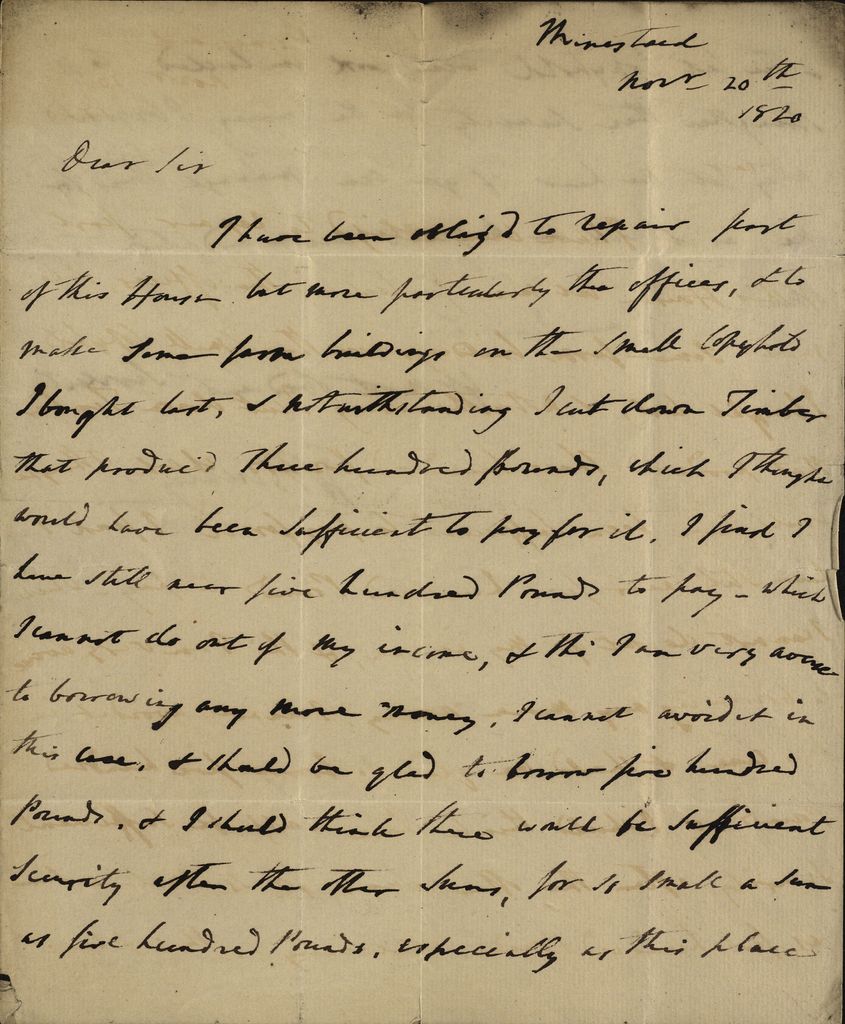 Minestead
Novr 20th
1820
Dear Sir
I have been oblig'd to repair part
of this House but more particularly the offices, & to
make some farm buildings on the small Copyhold
I bought last, & notwithstanding I cut down Timber
that produc'd Three hundred Pounds, which I thought
would have been sufficient to pay for it, I find I
have still near five hundred Pounds to pay - which
I cannot do out of my income, & tho I am very averse
to borrowing any more money, I cannot avoid it in
this case, & should be glad to borrow five hundred
Pounds, & I should think there would be sufficient
security after the other sums, for so small a sum
as five hundred Pounds, especially as this place